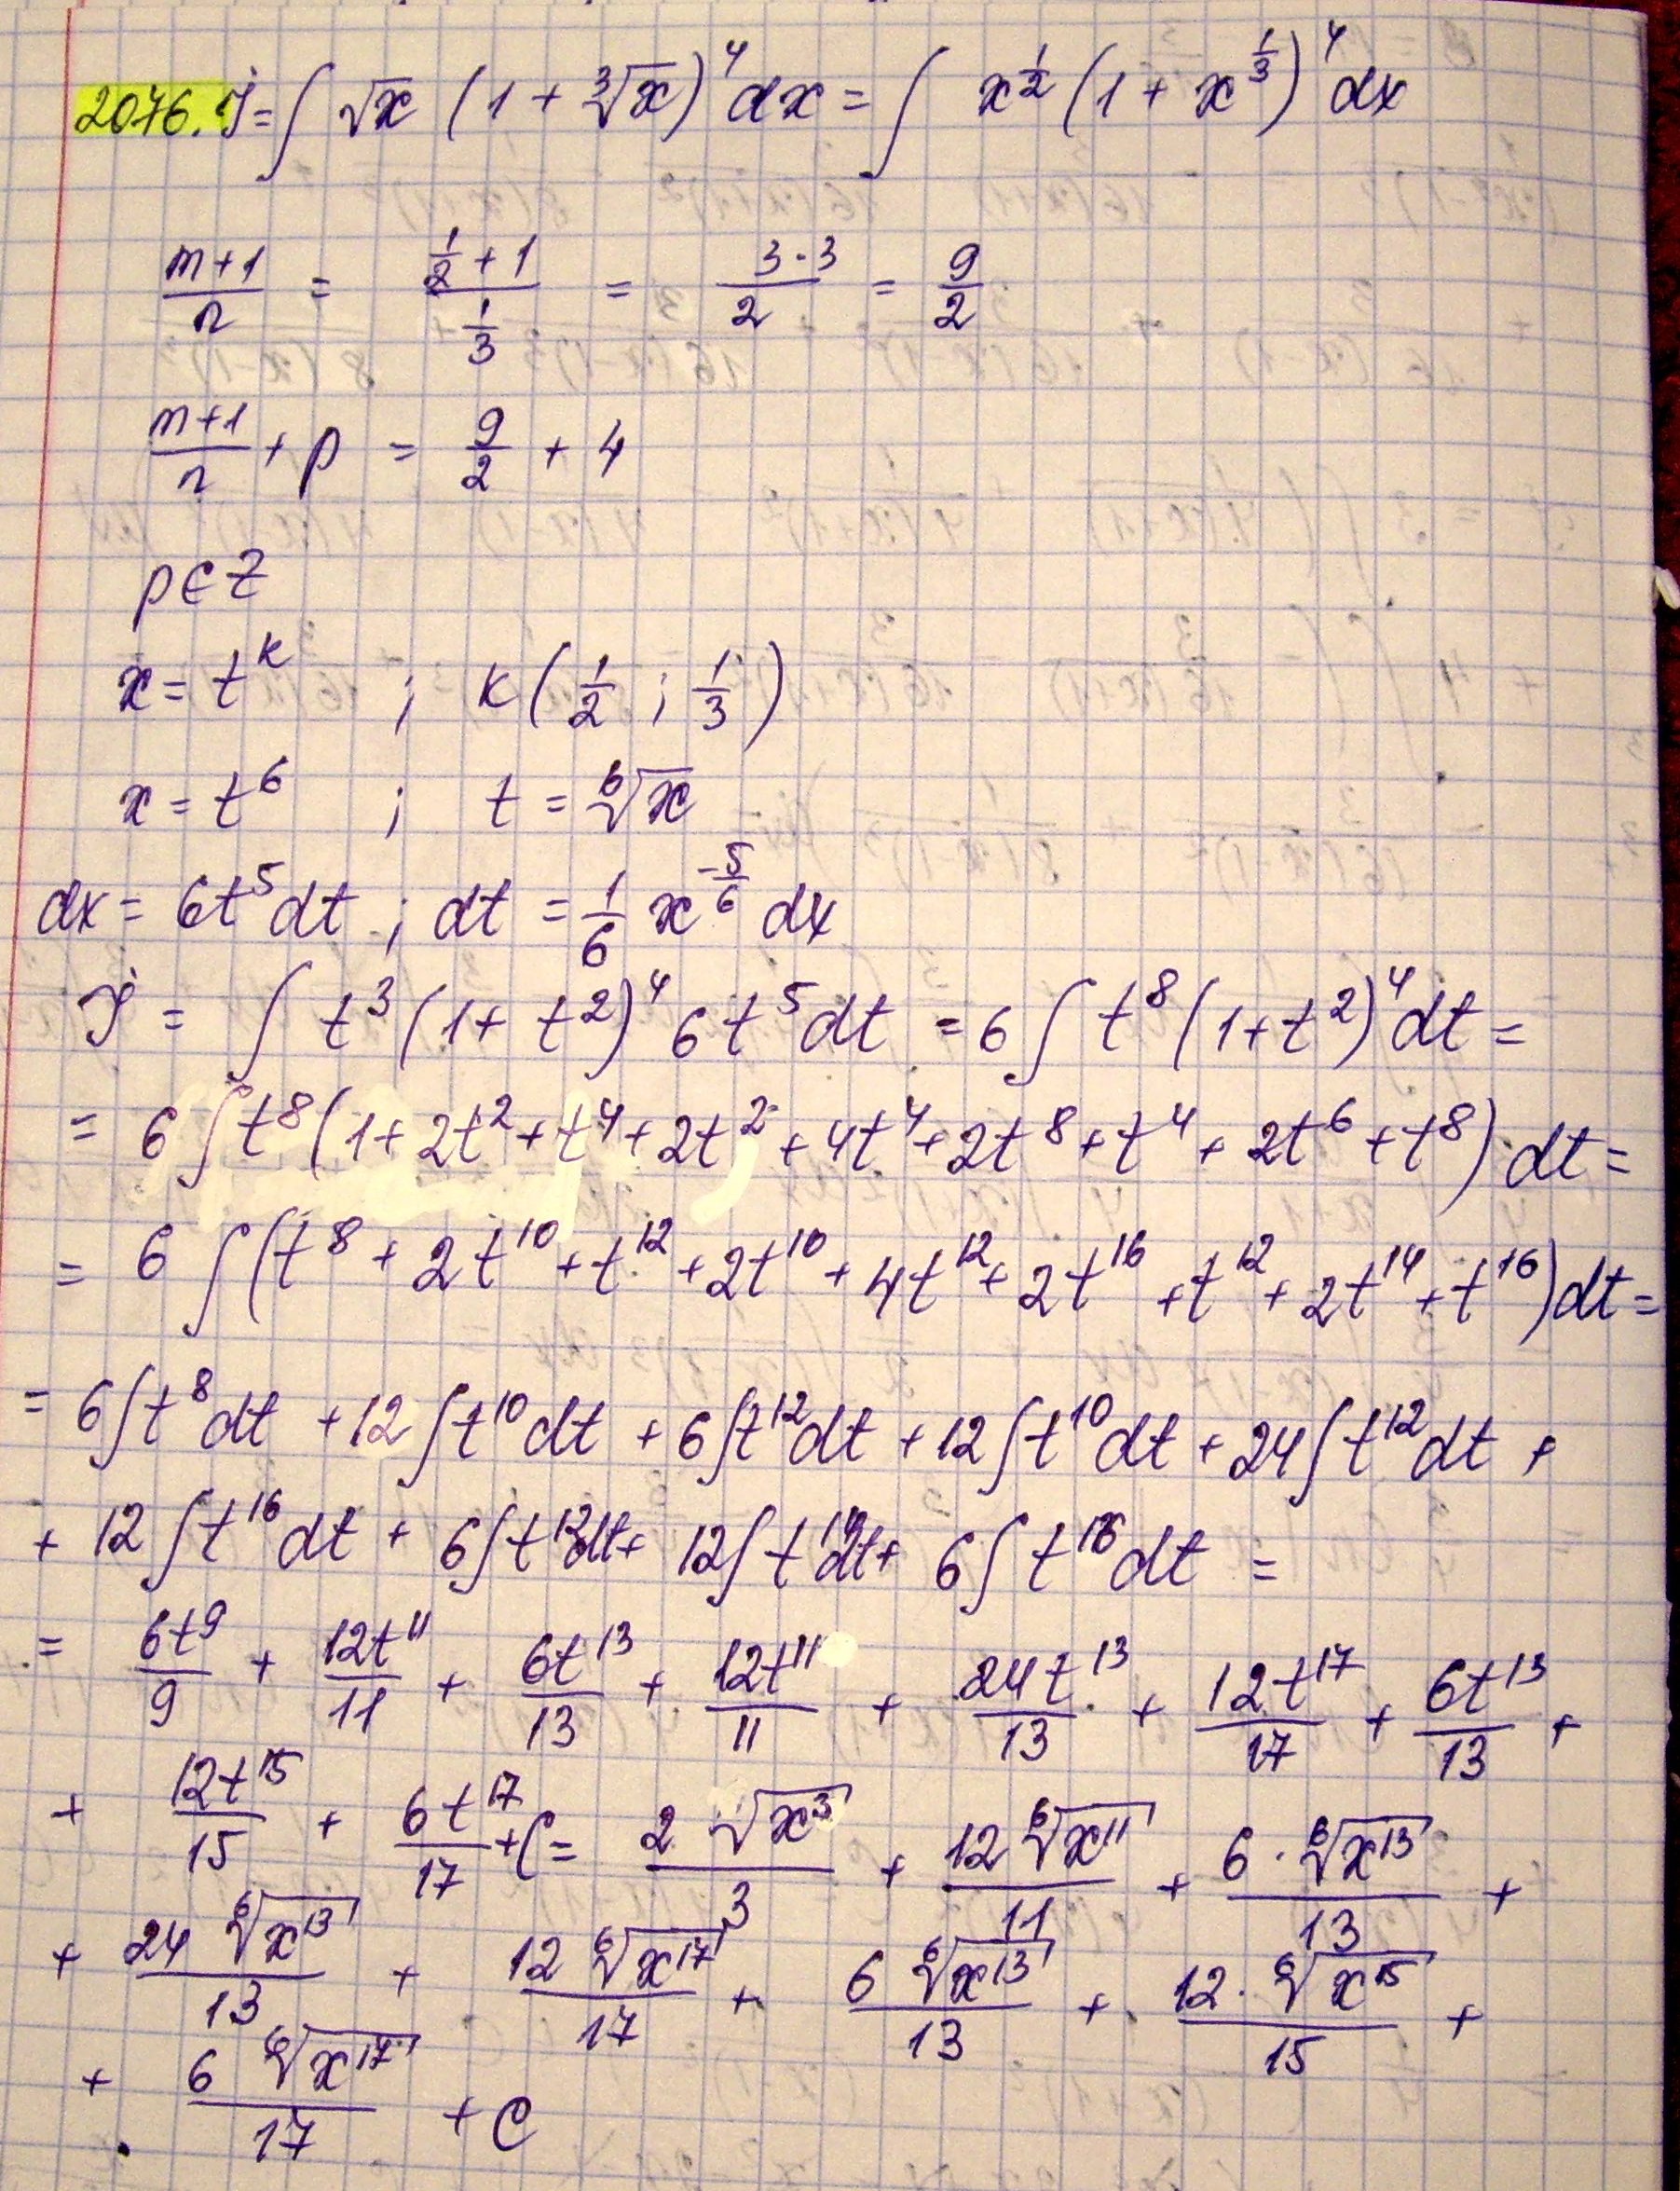 2076. J = ∫ √x (1 + ∛x)⁴ dx = ∫ x^(1/2) (1 + x^(1/3))⁴ dx
(m+1)/n = (1/2 + 1)/(1/3) = (3·3)/2 = 9/2
(m+1)/n + p = 9/2 + 4
p ∈ Z
x = t^k ; k(1/2 ; 1/3)
x = t⁶ ; t = ⁶√x
dx = 6t⁵dt ; dt = 1/6 x^(-5/6) dx
J = ∫ t³(1 + t²)⁴ 6t⁵dt = 6∫ t⁸(1+t²)⁴dt =
= 6∫t⁸(1+2t²+t⁴+2t²+4t⁴+2t⁸+t⁴+2t⁶+t⁸)dt =
= 6∫(t⁸+2t¹⁰+t¹²+2t¹⁰+4t¹²+2t¹⁶+t¹²+2t¹⁴+t¹⁶)dt =
= 6∫t⁸dt +12∫t¹⁰dt +6∫t¹²dt +12∫t¹⁰dt +24∫t¹²dt +
+ 12∫t¹⁶dt + 6∫t¹²dt + 12∫t¹⁴dt + 6∫t¹⁶dt =
= 6t⁹/9 + 12t¹¹/11 + 6t¹³/13 + 12t¹¹/11 + 24t¹³/13 + 12t¹⁷/17 + 6t¹³/13 +
+ 12t¹⁵/15 + 6t¹⁷/17 + C = 2√x³/3 + 12⁶√x¹¹/11 + 6·⁶√x¹³/13 +
+ 24⁶√x¹³/13 + 12⁶√x¹⁷/17 + 6⁶√x¹³/13 + 12·⁶√x¹⁵/15 +
+ 6⁶√x¹⁷/17 + C